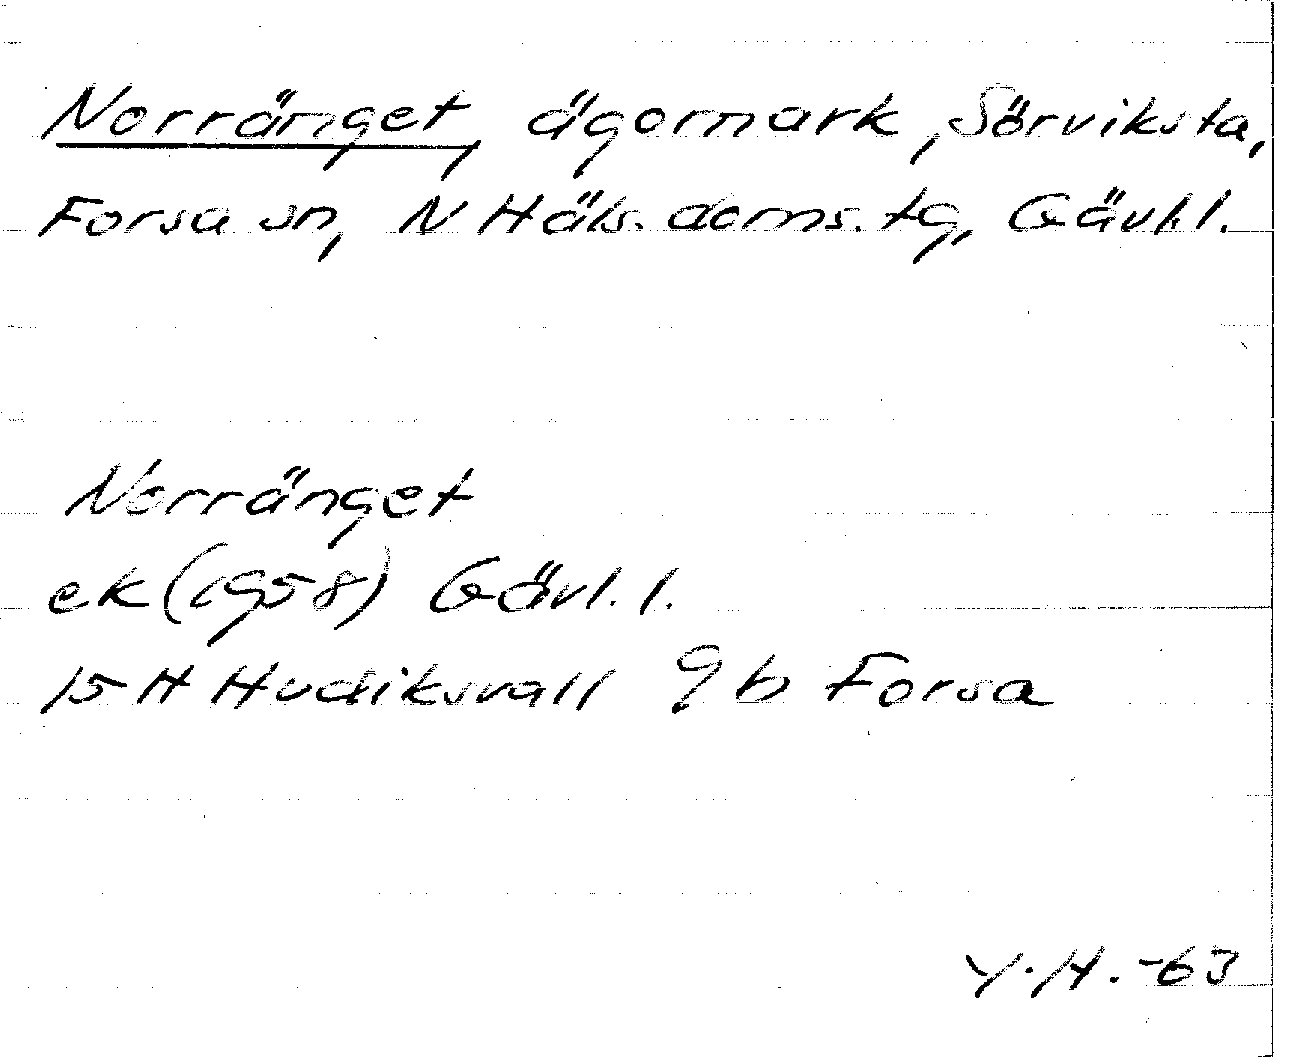 Norränget, ägomark, Sörviksta,
Forsa sn, N Häls. doms. tg, Gävl. l.
Norränget
ek (1958) Gävl. l.
15 H Hudiksvall 9 b Forsa
Y.H. -63